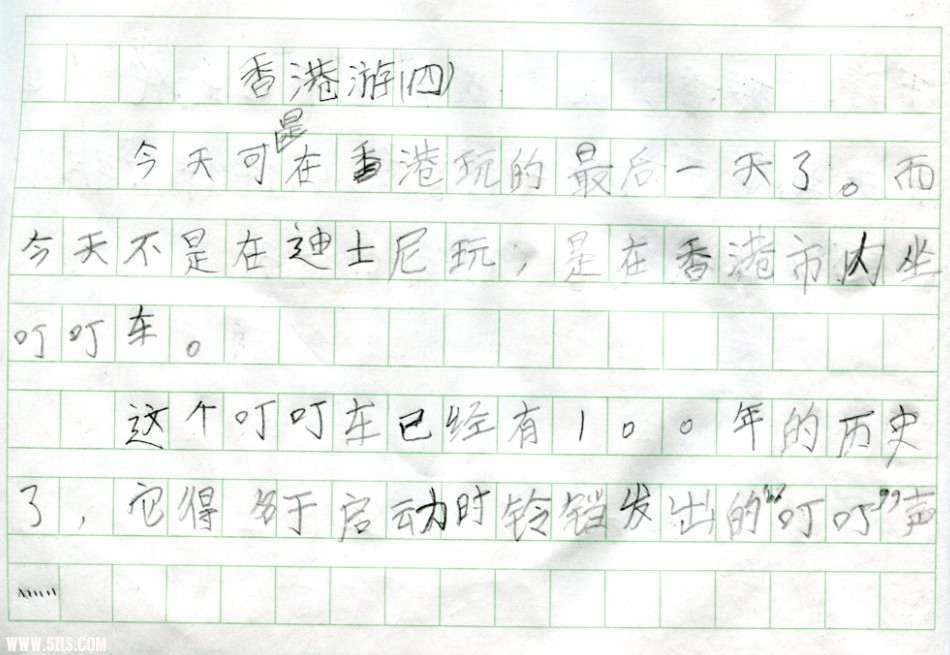 香港游(四)
今天可是在香港玩的最后一天了。而
今天不是在迪士尼玩,是在香港市内坐
叮叮车。
这个叮叮车已经有100年的历史
了,它得名于启动时铃铛发出的“叮叮”声
……
WWW.5ZLS.COM